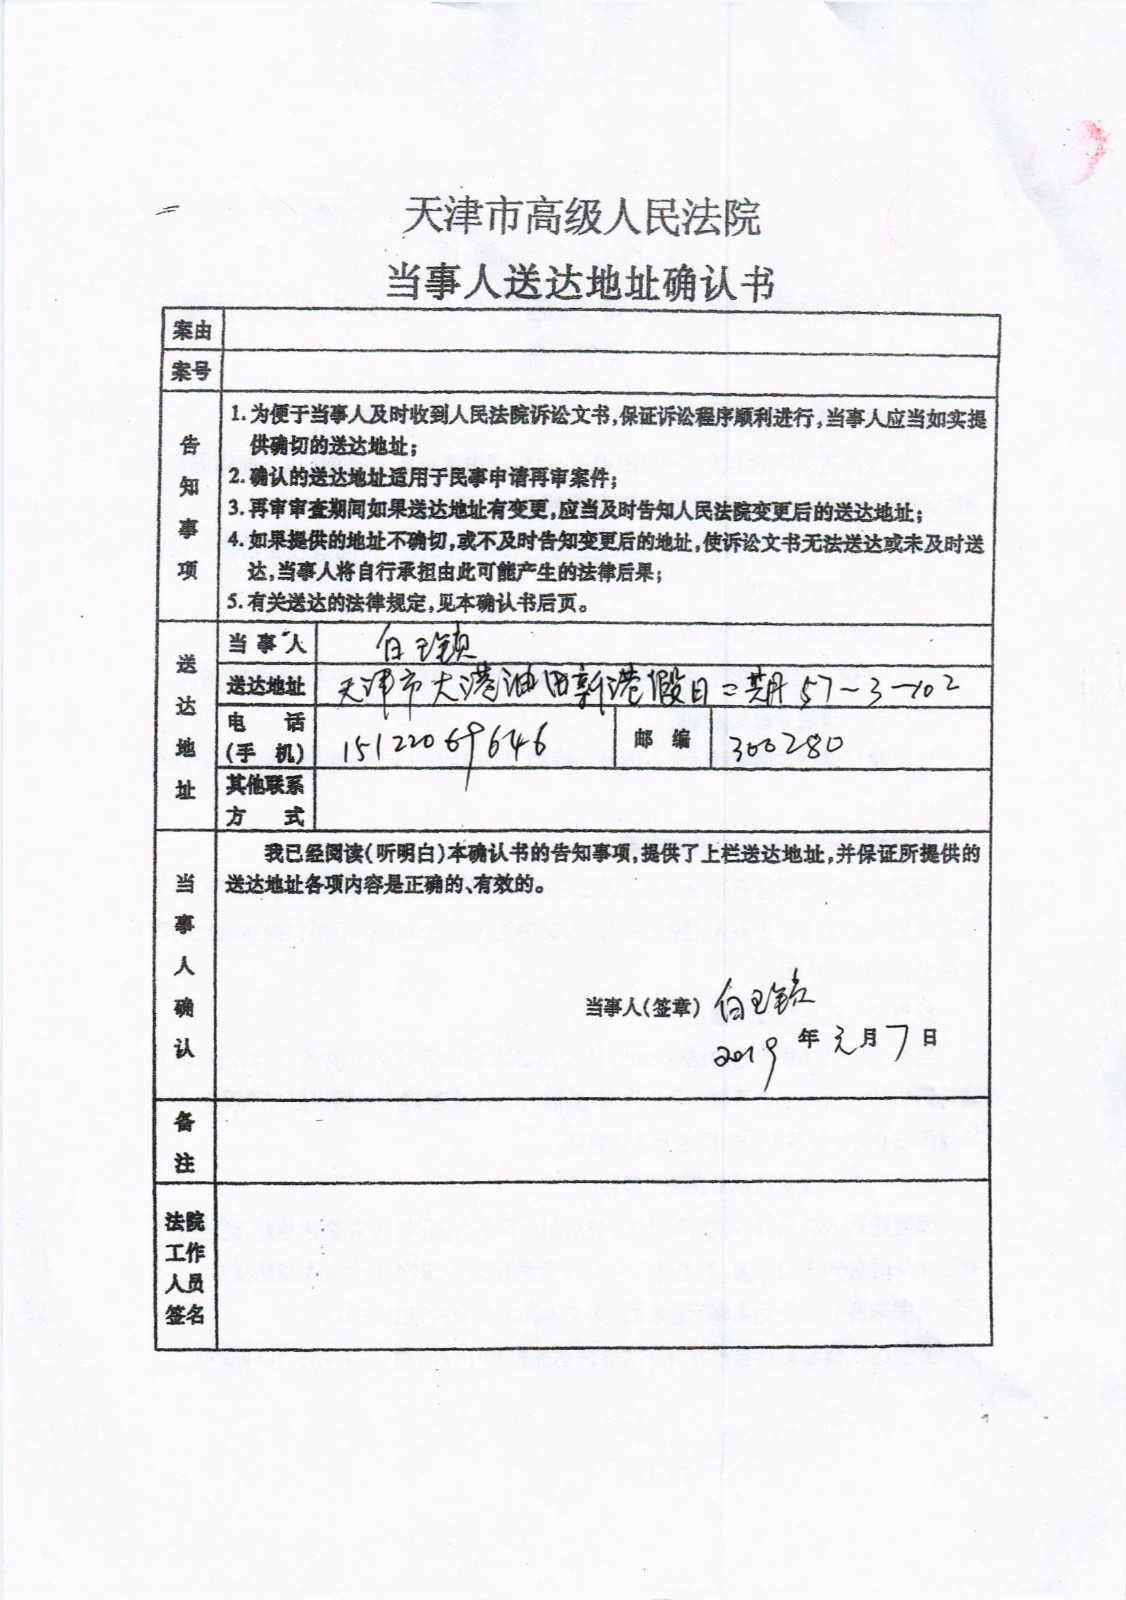 天津市高级人民法院
当事人送达地址确认书
案由
案号
告知事项
1.为便于当事人及时收到人民法院诉讼文书,保证诉讼程序顺利进行,当事人应当如实提
供确切的送达地址;
2.确认的送达地址适用于民事申请再审案件;
3.再审审查期间如果送达地址有变更,应当及时告知人民法院变更后的送达地址;
4.如果提供的地址不确切,或不及时告知变更后的地址,使诉讼文书无法送达或未及时送
达,当事人将自行承担由此可能产生的法律后果;
5.有关送达的法律规定,见本确认书后页。
送达地址
当事人 白玉锁
送达地址 天津市大港油田新港假日二期57-3-102
电话
(手机) 15122069646 邮编 300280
其他联系
方式
当事人确认
我已经阅读(听明白)本确认书的告知事项,提供了上栏送达地址,并保证所提供的
送达地址各项内容是正确的、有效的。
当事人(签章) 白玉锁
2019年元月7日
备注
法院
工作
人员
签名